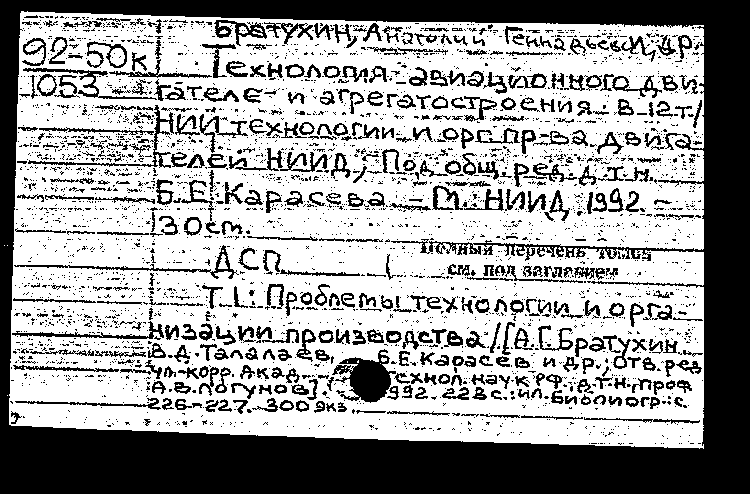 Братухин, Анатолий Геннадьевич, др.
92-50к
1053
Технология авиационного дви-
гателе- и агрегатостроения: В 12 т./
НИИ технологии и орг. пр-ва двига-
телей НИИД; Под общ. ред. д.т.н.
Б.Е. Карасева. - М.: НИИД, 1992 -
30 см.
ДСП
Полный перечень томов
см. под заглавием
Т.1: Проблемы технологии и орга-
низации производства // [А.Г. Братухин,
В.Д. Талалаев, Б.Е. Карасев и др.; Отв. ред.
чл.-корр. Акад. технол. наук РФ, д.т.н., проф.
А.В. Логунов]. 1992. 228 с.: ил. Библиогр.: с.
226-227. 300 экз.